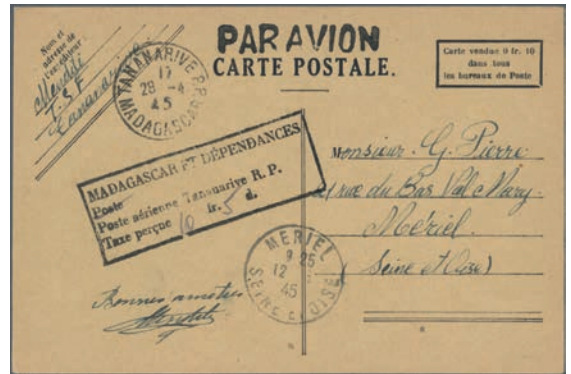 Nom et
adresse de
l'expéditeur
T.S.F
Tananarive
TANANARIVE R.P.
17
28 -4
45
MADAGASCAR
PAR AVION
CARTE POSTALE.
Carte vendue 0 fr. 10
dans tous
les bureaux de Poste
MADAGASCAR ET DÉPENDANCES
Poste
Poste aérienne Tananarive R. P.
Taxe perçue 10 fr. 5 d.
Monsieur G. Pierre
rue du Bas Val Mary
Mériel
(Seine et Oise)
MERIEL
9 25
12
45
SEINE ET OISE
Bonnes amitiés